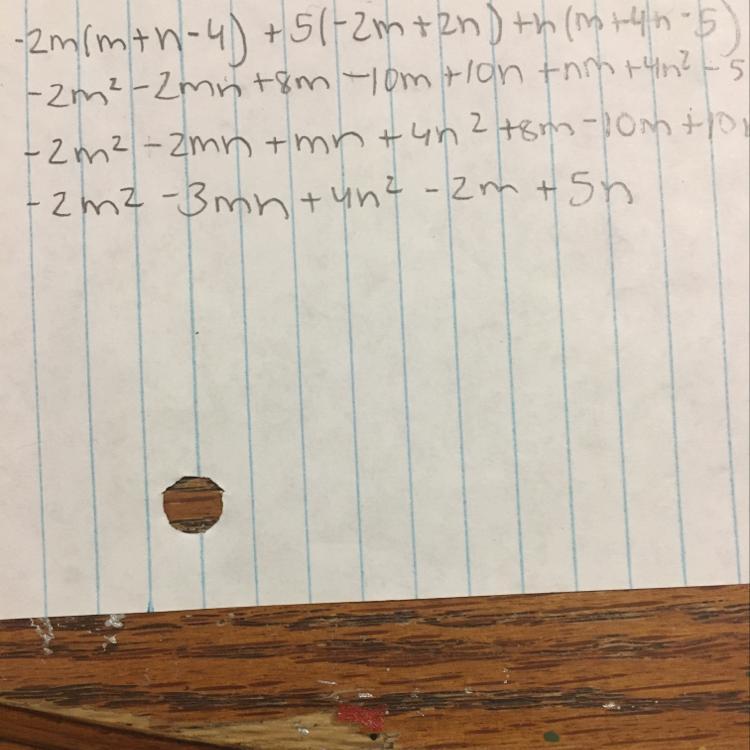 -2m(m+n-4) +5(-2m+2n)+n(m+4n-5)
-2m² -2mn +8m -10m +10n +nm +4n² -5
-2m² -2mn +mn +4n² +8m -10m +10
-2m² -3mn +4n² -2m +5n